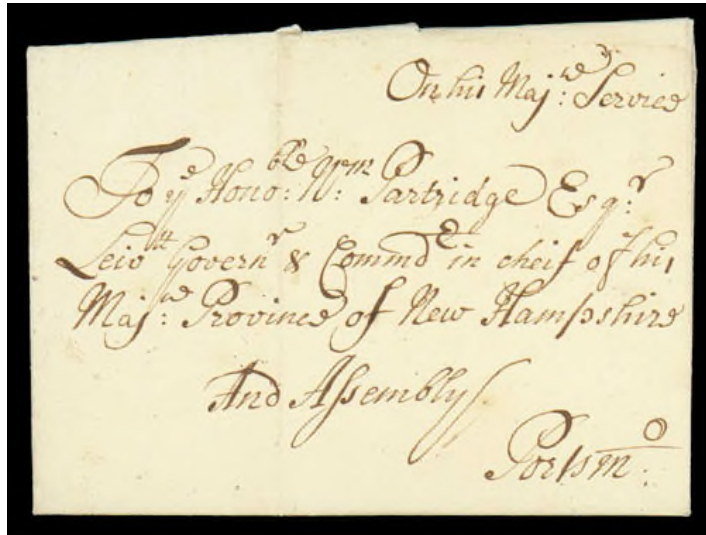 On his Maj:tys Service
To ye Honoble: Wm: Partridge Esqr:
Leivtt Governr & Commdr in cheif of his
Majtys: Province of New Hampshire
And Assembly
Portsmo: